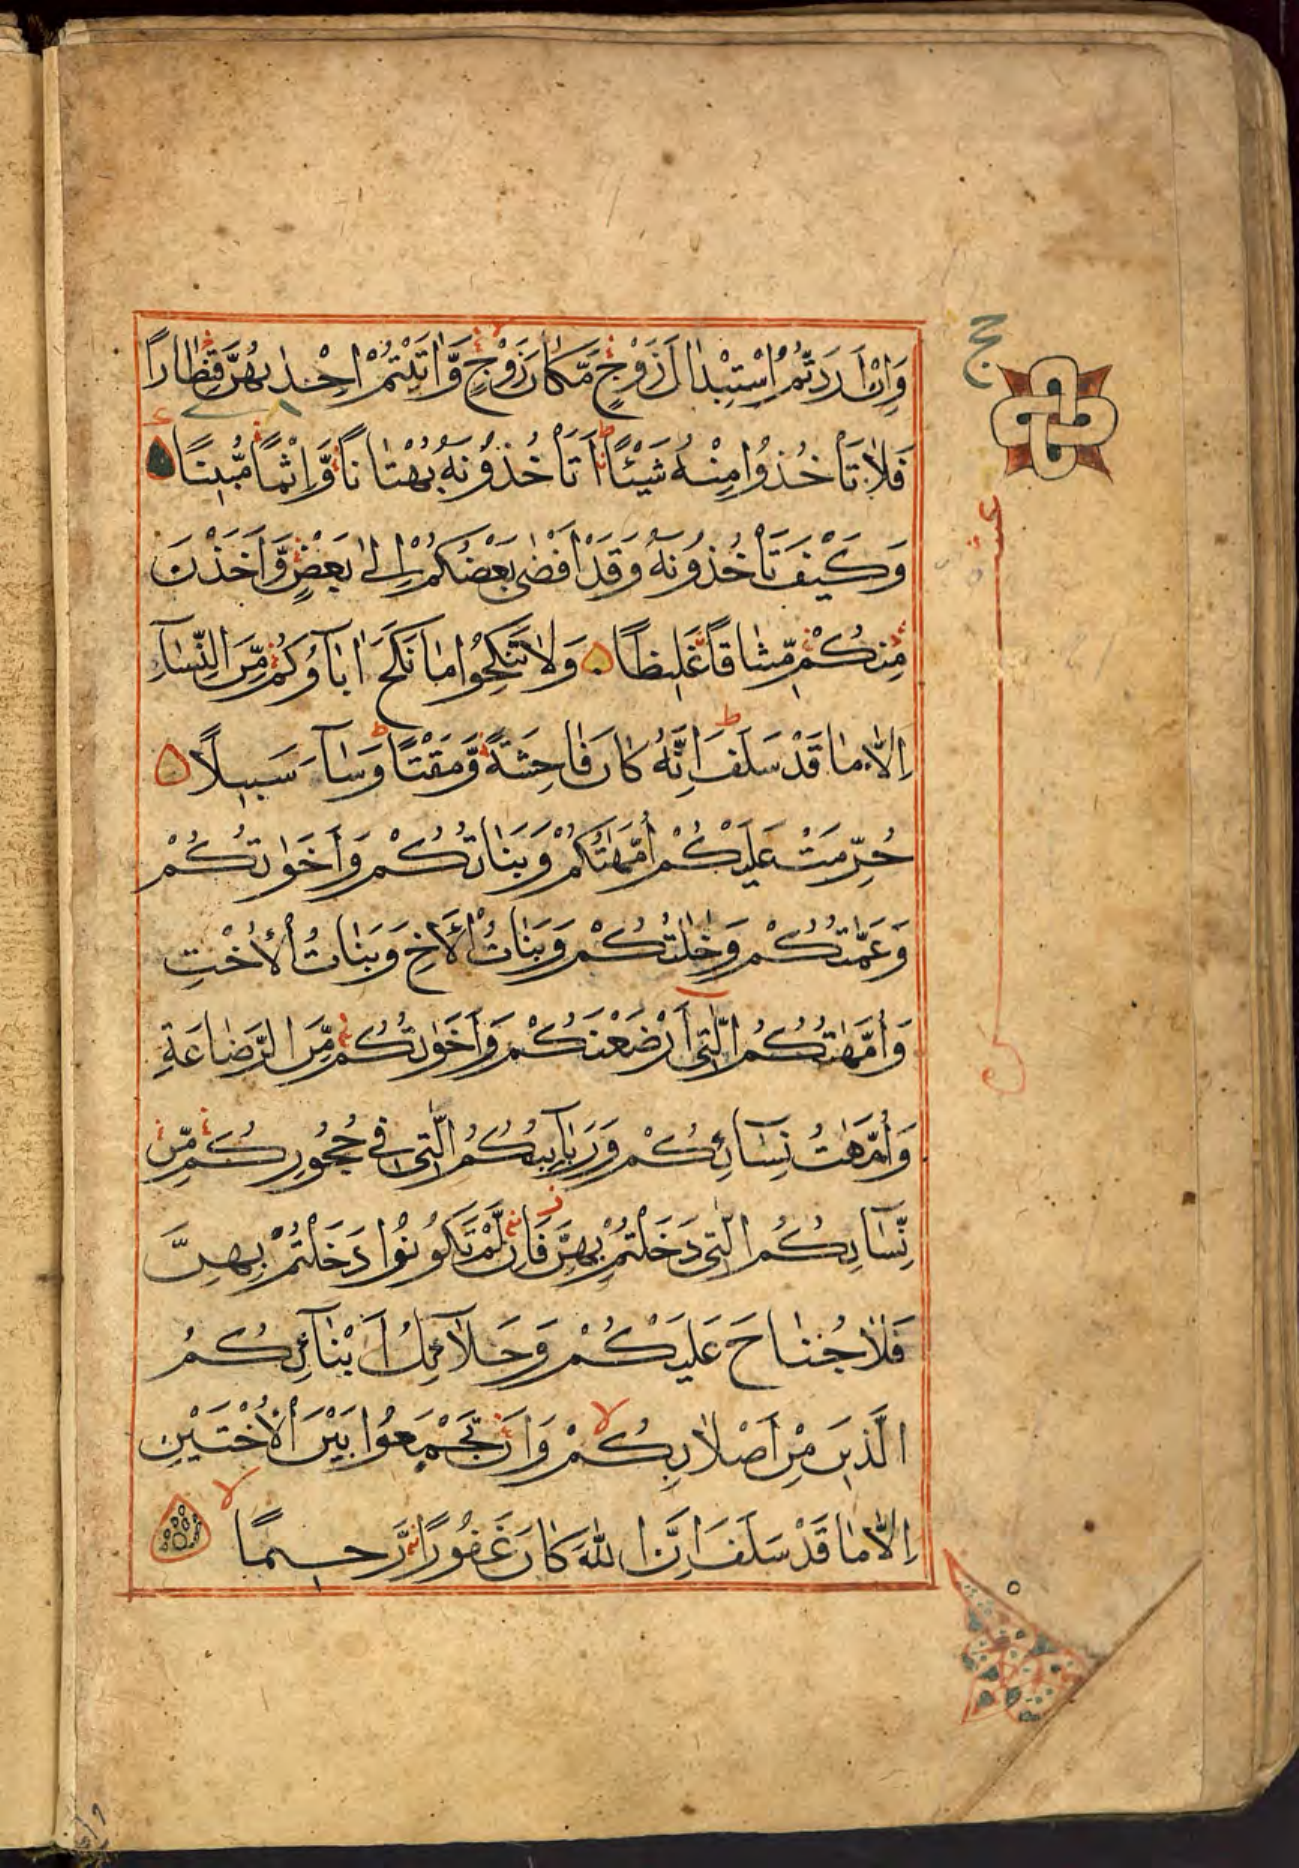 وَاِنْ اَرَدْتُّمُ اسْتِبْدَالَ زَوْجٍ مَّكَانَ زَوْجٍ وَّاٰتَيْتُمْ اِحْدٰىهُنَّ قِنْطَارًا
فَلَا تَاْخُذُوْا مِنْهُ شَيْئًا اَتَاْخُذُوْنَهٗ بُهْتَانًا وَّاِثْمًا مُّبِيْنًا
وَكَيْفَ تَاْخُذُوْنَهٗ وَقَدْ اَفْضٰى بَعْضُكُمْ اِلٰى بَعْضٍ وَّاَخَذْنَ
مِنْكُمْ مِّيْثَاقًا غَلِيْظًا وَلَا تَنْكِحُوْا مَا نَكَحَ اٰبَآؤُكُمْ مِّنَ النِّسَآءِ
اِلَّا مَا قَدْ سَلَفَ اِنَّهٗ كَانَ فَاحِشَةً وَّمَقْتًا وَسَآءَ سَبِيْلًا
حُرِّمَتْ عَلَيْكُمْ اُمَّهٰتُكُمْ وَبَنَاتُكُمْ وَاَخَوٰتُكُمْ
وَعَمّٰتُكُمْ وَخٰلٰتُكُمْ وَبَنَاتُ الْاَخِ وَبَنَاتُ الْاُخْتِ
وَاُمَّهٰتُكُمُ الّٰتِيْ اَرْضَعْنَكُمْ وَاَخَوٰتُكُمْ مِّنَ الرَّضَاعَةِ
وَاُمَّهٰتُ نِسَآئِكُمْ وَرَبَآئِبُكُمُ الّٰتِيْ فِيْ حُجُوْرِكُمْ مِّنْ
نِّسَآئِكُمُ الّٰتِيْ دَخَلْتُمْ بِهِنَّ فَاِنْ لَّمْ تَكُوْنُوْا دَخَلْتُمْ بِهِنَّ
فَلَا جُنَاحَ عَلَيْكُمْ وَحَلَآئِلُ اَبْنَآئِكُمُ
الَّذِيْنَ مِنْ اَصْلَابِكُمْ وَاَنْ تَجْمَعُوْا بَيْنَ الْاُخْتَيْنِ
اِلَّا مَا قَدْ سَلَفَ اِنَّ اللّٰهَ كَانَ غَفُوْرًا رَّحِيْمًا